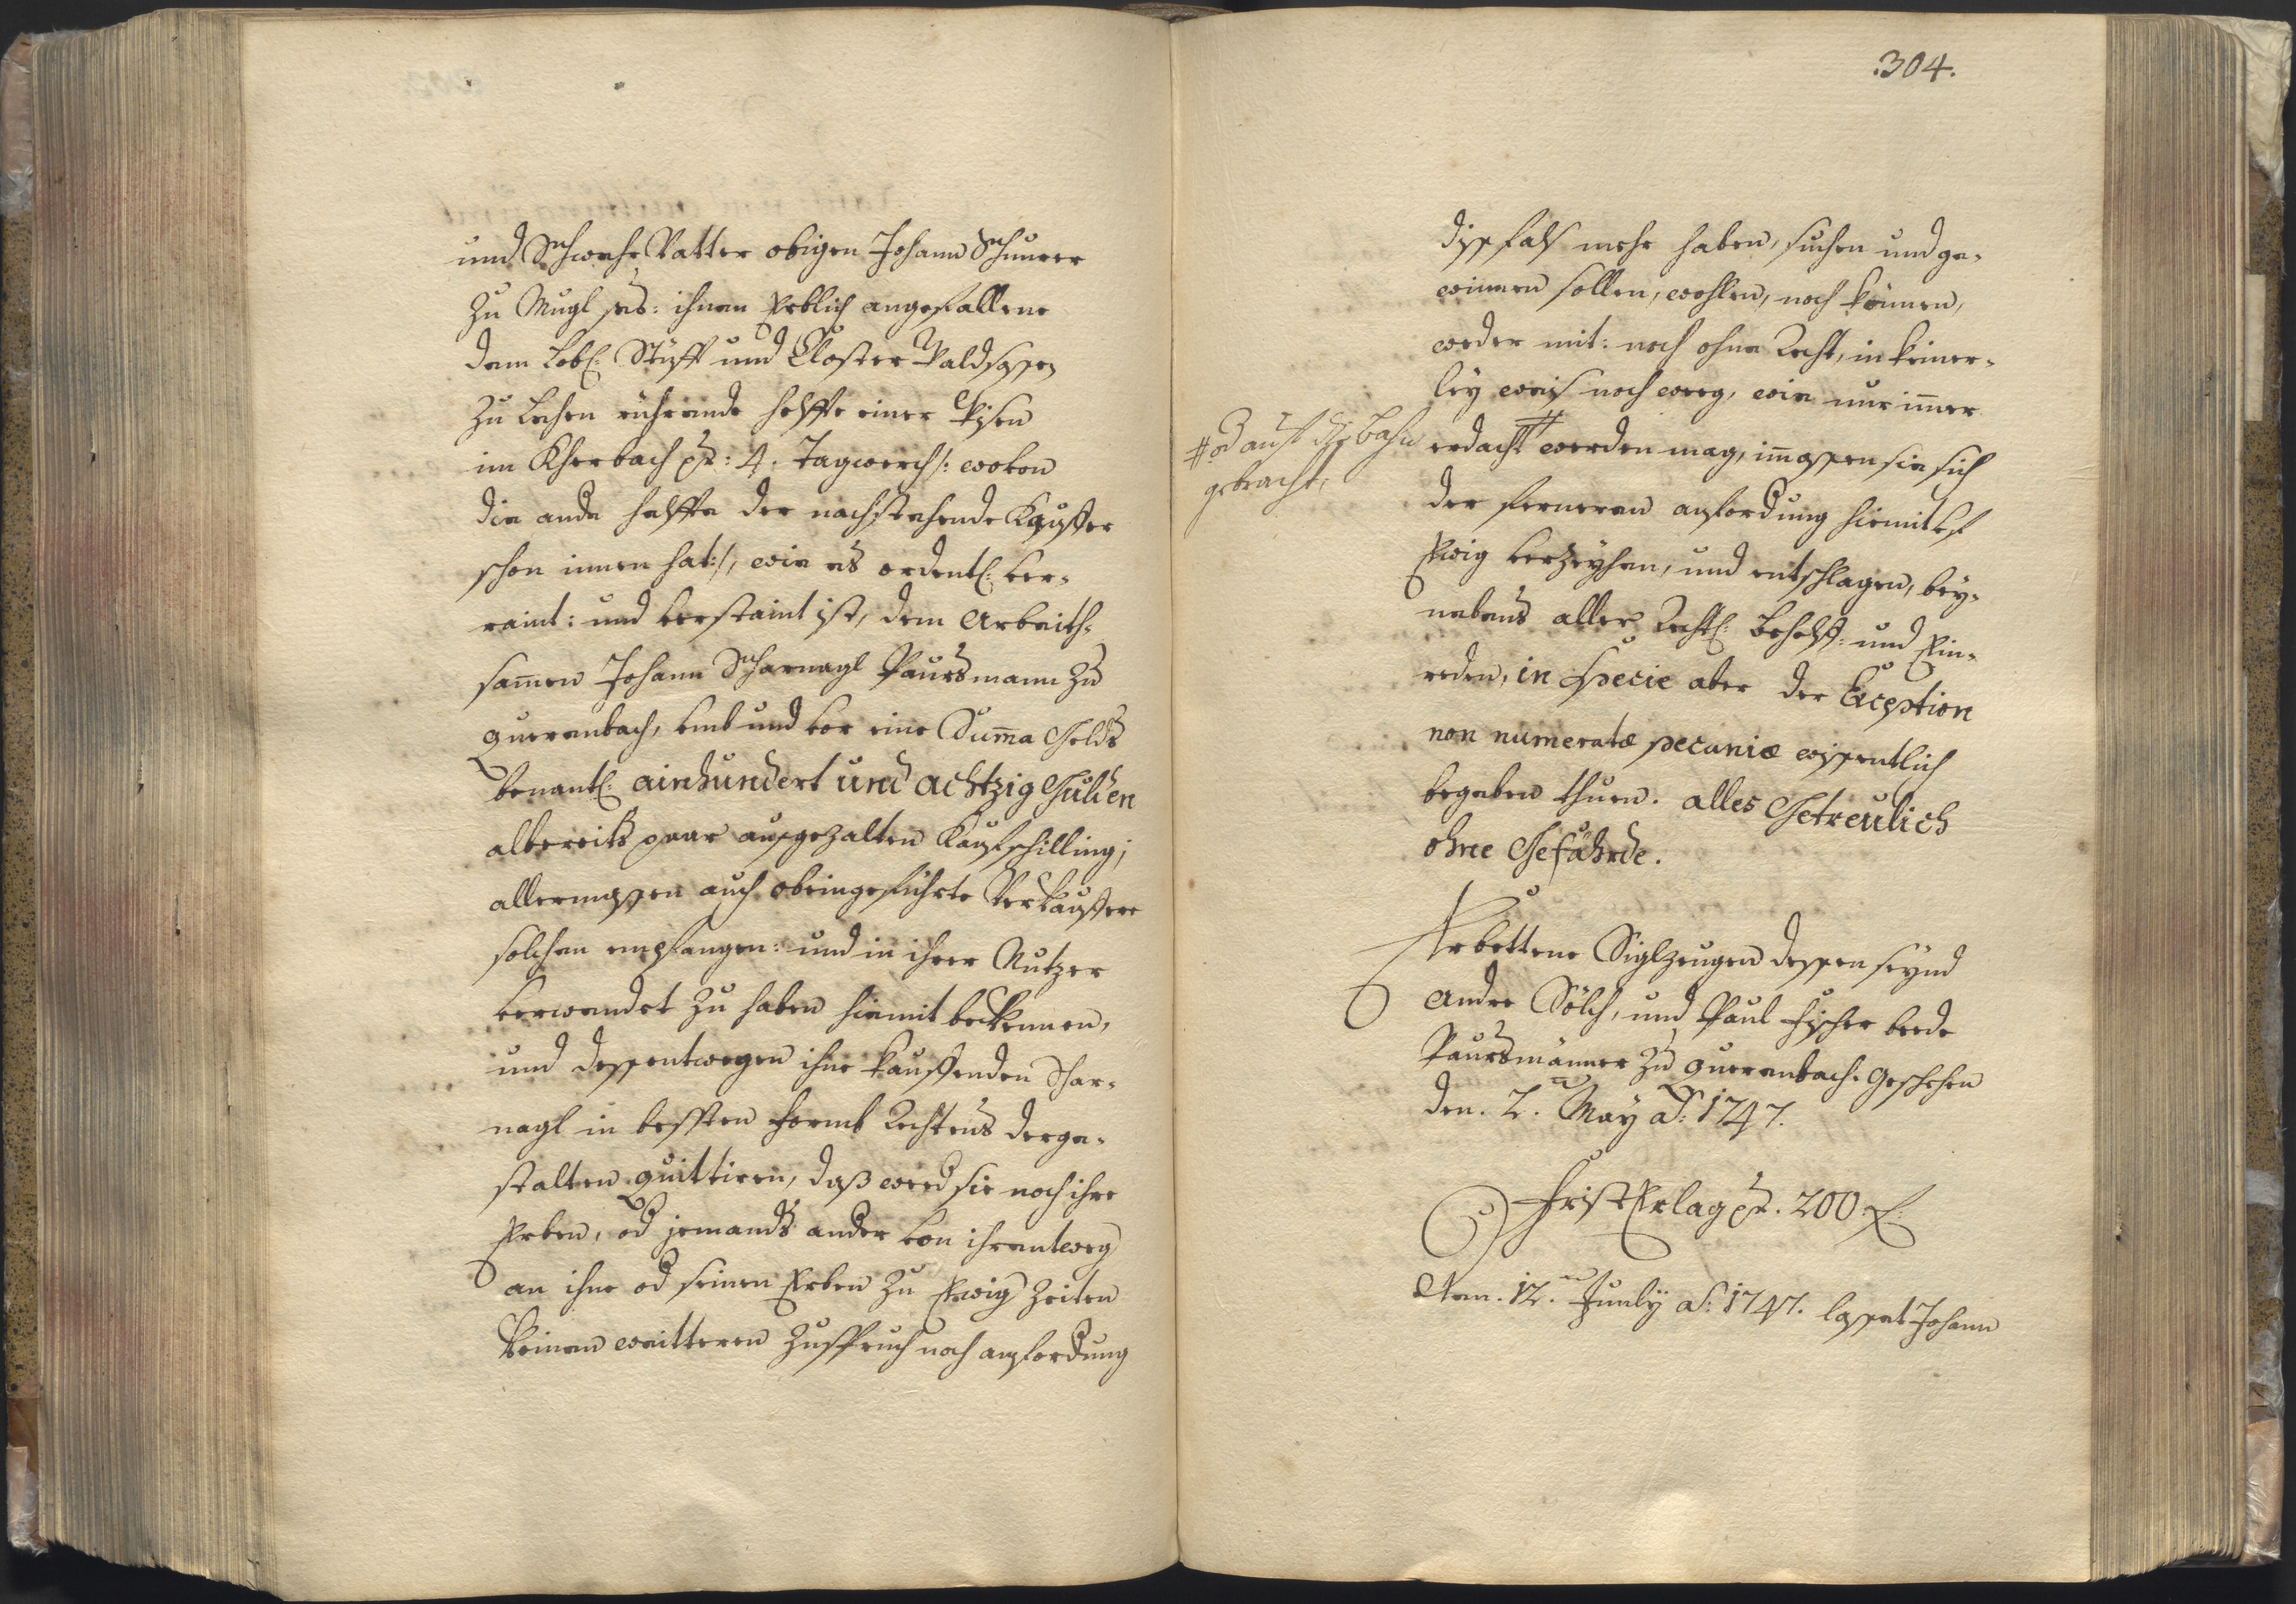 und Schwehr Vatter obigen Johann Schnurer
zu Mugl sel: ihnen Erblich angefallene
dem Löbl: Stüfft und Closter Waldsassen
zu Lehen rührende helffte einer Wisen
im Kherbach pr: 4. Tagwerch /: wovon
die ande helffte der nachstehende Kauffer
schon innen hat :/, wie es ordentl: ver-
raint: und verstaint ist, dem Arbeith-
samen Johann Scharnagl Paursmann zu
Querenbach, umb und vor eine Suma Gelds
benantl: ainhundert und achtzig Gulden
albereits paar ausgezalten Kaufschilling;
allermassen auch obeingeführte Verkauffere
solchen empfangen: und in ihrer Nutzen
verwendet zu haben hiemit bekennen,
und dessentwegen ihne kauffenden Schar-
nagl in bessten Formb Rechtens derge-
stalten quittiren, daß wed sie noch ihre
Erben, od jemands ander von ihrentweg
an ihne od seinen Erben zu Ewig Zeiten
keinen weitteren Zuspruch noch anfordung
.304.
dissfals mehr haben, suchen und ge-
winnen sollen, wohlen, noch können,
weder mit: noch ohne Recht, in keiner-
ley weis noch weeg, wie nur imer
# od auf die bahn
gebracht,
erdacht # werden mag, imassen sie sich
der ferneren anfordung hiemit uf
Ewig verzeyhen, und entschlagen, bey-
nebens aller Rechtl: behelff: und Ein-
reden, in specie aber der Exception
non numeratæ pecuniæ wissentlich
begeben thuen. alles Getreulich
ohne Gefährde.
Erbettene Siglzeugen dessen seynd
Andre Sölch, und Paul Fischer beede
Paursmänner zu Querenbach. Geschehen
den. 2. May ao: 1747.
Frist Erlag pr. 200 f:
Den. 12. Juny ao: 1747. lasset Johann